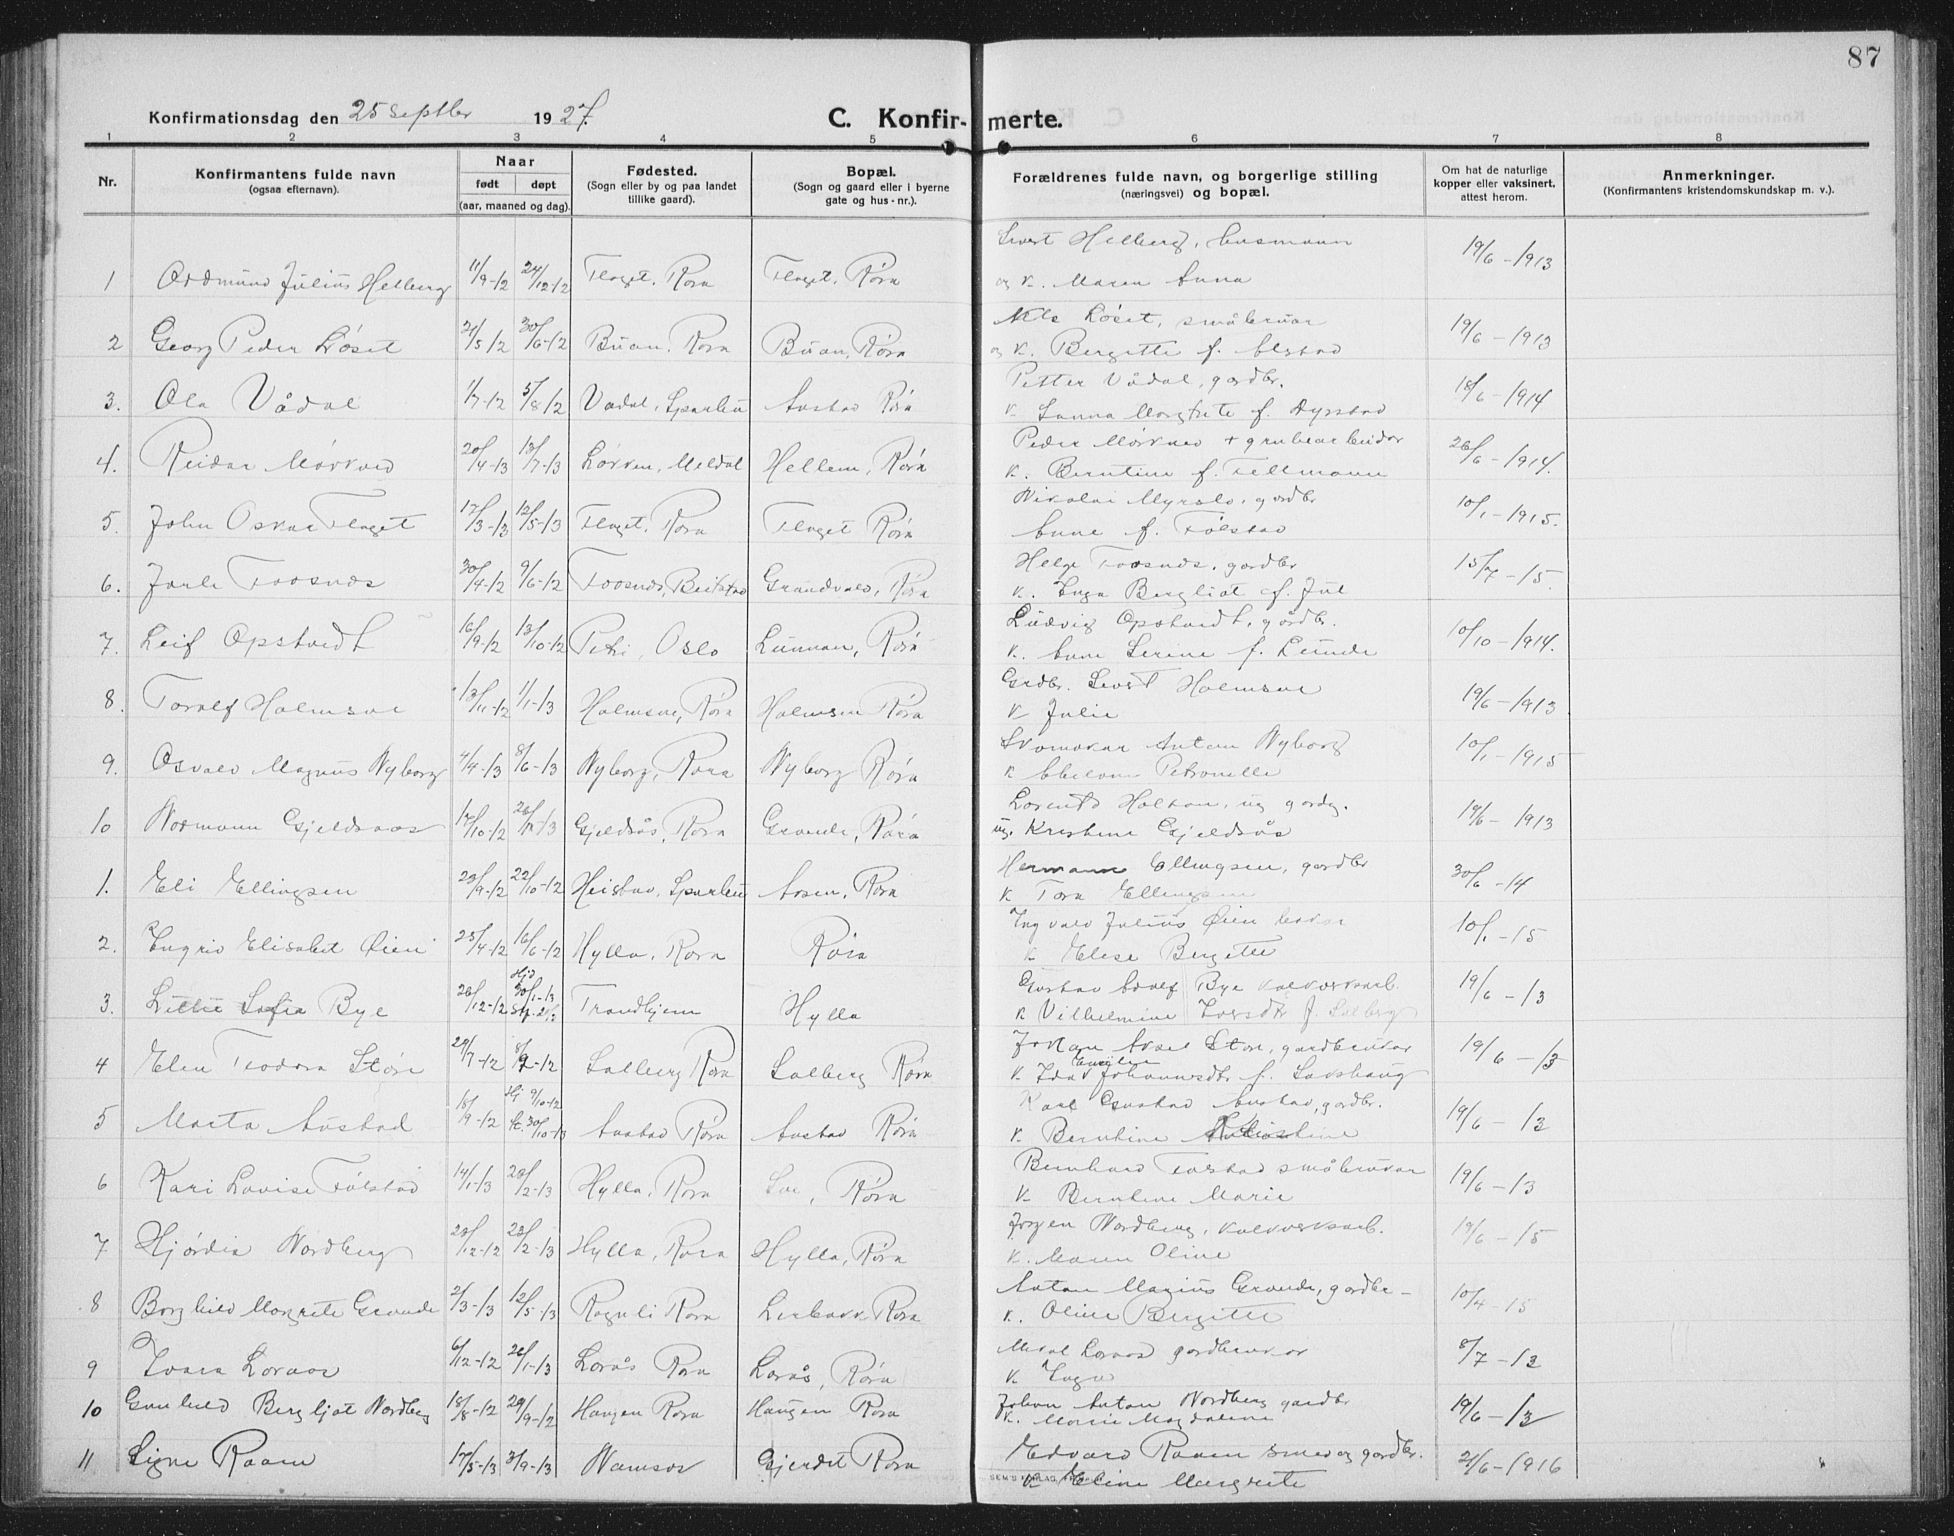 87
Konfirmationsdag den 25 Septbr 1927.
C. Konfirmerte.
1 2 3 4 5 6 7 8
Nr.
Konfirmantens fulde navn
(ogsaa efternavn).
Naar
født døpt
(aar, maaned og dag).
Fødested.
(Sogn eller by og paa landet
tillike gaard).
Bopæl.
(Sogn og gaard eller i byerne
gate og hus-nr.).
Forældrenes fulde navn, og borgerlige stilling
(næringsvei) og bopæl.
Om hat de naturlige
kopper eller vaksinert,
attest herom.
Anmerkninger.
(Konfirmantens kristendomskundskap m. v.).
Sivert Helberg, husmann
1 Oddmund Julius Helberg 11/9-12 24/12-12 Floget, Røra Floget, Røra og k. Maren Anna 19/6-1913
Nils Løset, småbruker
2 Georg Peder Løset 21/5 12 30/6-12 Buan, Røra Buan, Røra og k. Bergitte f. Alstad 19/6-1913
Petter Vådal, gardbr.
3. Ola Vådal 1/7-12 5/8-12 Vådal, Sparbu Austad Røra k. Sanna Margrete f. Dyrstad 18/6-1914
Peder Mørkved + grubearbeider
4. Reidar Mørkved 20/4-13 13/7-13 Løkken, Meldal Hellem, Røra k. Berntine f. Fellmann 26/6-1914.
Nikolai Myrslo, gardbr
5. John Oskar Floget 17/3-13 12/5-13 Floget, Røra Floget Røra Anne f. Følstad 10/1-1915.
Helge Foosnæs, gardbr
6. Jarle Foosnæs 30/4-12 9/6-12 Foosnæs, Beitstad Grandvald, Røra k. Inga Bergliot f. Jul 15/7-15.
Ludvig Opstvedt, gårdbr.
7. Leif Opstvedt 16/9-12 13/10-12 Petri, Oslo Lunnan, Røra k. Anne Serine f. Leinde 10/10-1914.
Grdbr. Sivert Holmsve
8. Toralf Holmsve 13/11-12 1/1-13 Holmsve, Røra Holmsve Røra k Julie 19/6-1913
Skomaker Anton Nyborg
9. Osvald Magnus Nyborg 4/4-13 8/6-13 Nyborg, Røra Nyborg Røra k Petronelle 10/1-1915
Lorents Holtan, ug gardg.
10 Normann Gjeldsaas 17/10-12 26/1-13 Gjeldsås, Røra Grande, Røra ug. Kristine Gjeldsås 19/6-1913
Hermann Ellingsen, gardbr
1. Eli Ellingsen 23/9-12 22/10-12 Heistad, Sparbu Aasen, Røra k Tora Ellingsen 30/6-14
Ingvald Julius Øien
2. Ingrid Elisabet Øien 25/4-12 16/6-12 Hylla, Røra Røra k. Elise Bergitte 10/1-15
Gustav Adolf Bye kalkverksarb.
3. Lillie Sofia Bye 26/12-12 Hjd 30/1-13 Trondhjem Hylla k Vilhelmine f. Salberg 19/6-13
Johan Aksel Støre, gardbruker
4 Elen Teodora Støre 29/7-12 8/9-12 Salberg Røra Salberg Røra k. Ida Emilie Johannesdtr f. Savshaug 19/6-13
Karl Gustav Austad, gardbr.
5 Marta Austad 18/9-12 Hj 9/10-12 St. 30/10-13 Austad Røra Austad Røra k. Berntine Kristine 19/6-13
Bernhard Følstad småbruker
6 Kari Lovise Følstad 14/1-13 23/2-13 Hylla, Røra Sve, Røra k. Berntine Marie 19/6-13
Jørgen Nordberg, kalkverksarb.
7 Hjørdis Nordberg 29/12-12 23/2-13 Hylla, Røra Hylla, Røra k. Maren Oline 19/6-15
Anton Magnus Grande, gardbr-
8 Borghild Margrete Grande 2/3-13 12/5-13 Roguli Røra Lerbakk Røra k. Oline Bergitte 10/4-15
Loraas gardbruker
9 Ivara Loraas 6/12-12 26/1-13 Lorås Røra Lorås, Røra k. Inga 8/7-13
Johan Anton Nordberg gardbr
10 Gunhild Bergljot Nordberg 18/8-12 29/9-12 Haugen Røra Haugen Røra k. Marie Magdalene 19/6-13
Edvard Raaen smed og gardbr.
11 Signe Raaen 17/5-13 3/9-13 Namsos Gjerdet Røra k Eline Margrete 21/6-1916
SEM'S FORLAG